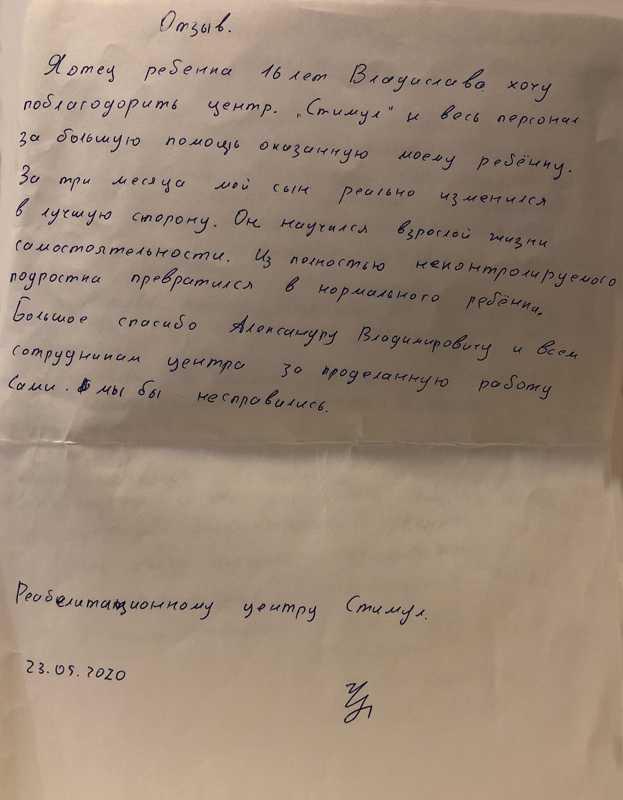 Отзыв.
Я отец ребенка 16 лет Владислава хочу
поблагодорить центр. „Стимул" и весь персонал
за большую помощь оказанную моему ребёнку.
За три месяца мой сын реально изменился
в лучшую сторону. Он научился взрослой жизни
самостоятельности. Из полностью неконтролируемого
подростка превратился в нормального ребёнка.
Большое спасибо Александру Владимировичу и всем
сотрудникам центра за проделанную работу
Сами. мы бы несправились.
Реабелитационному центру Стимул.
23.09.2020